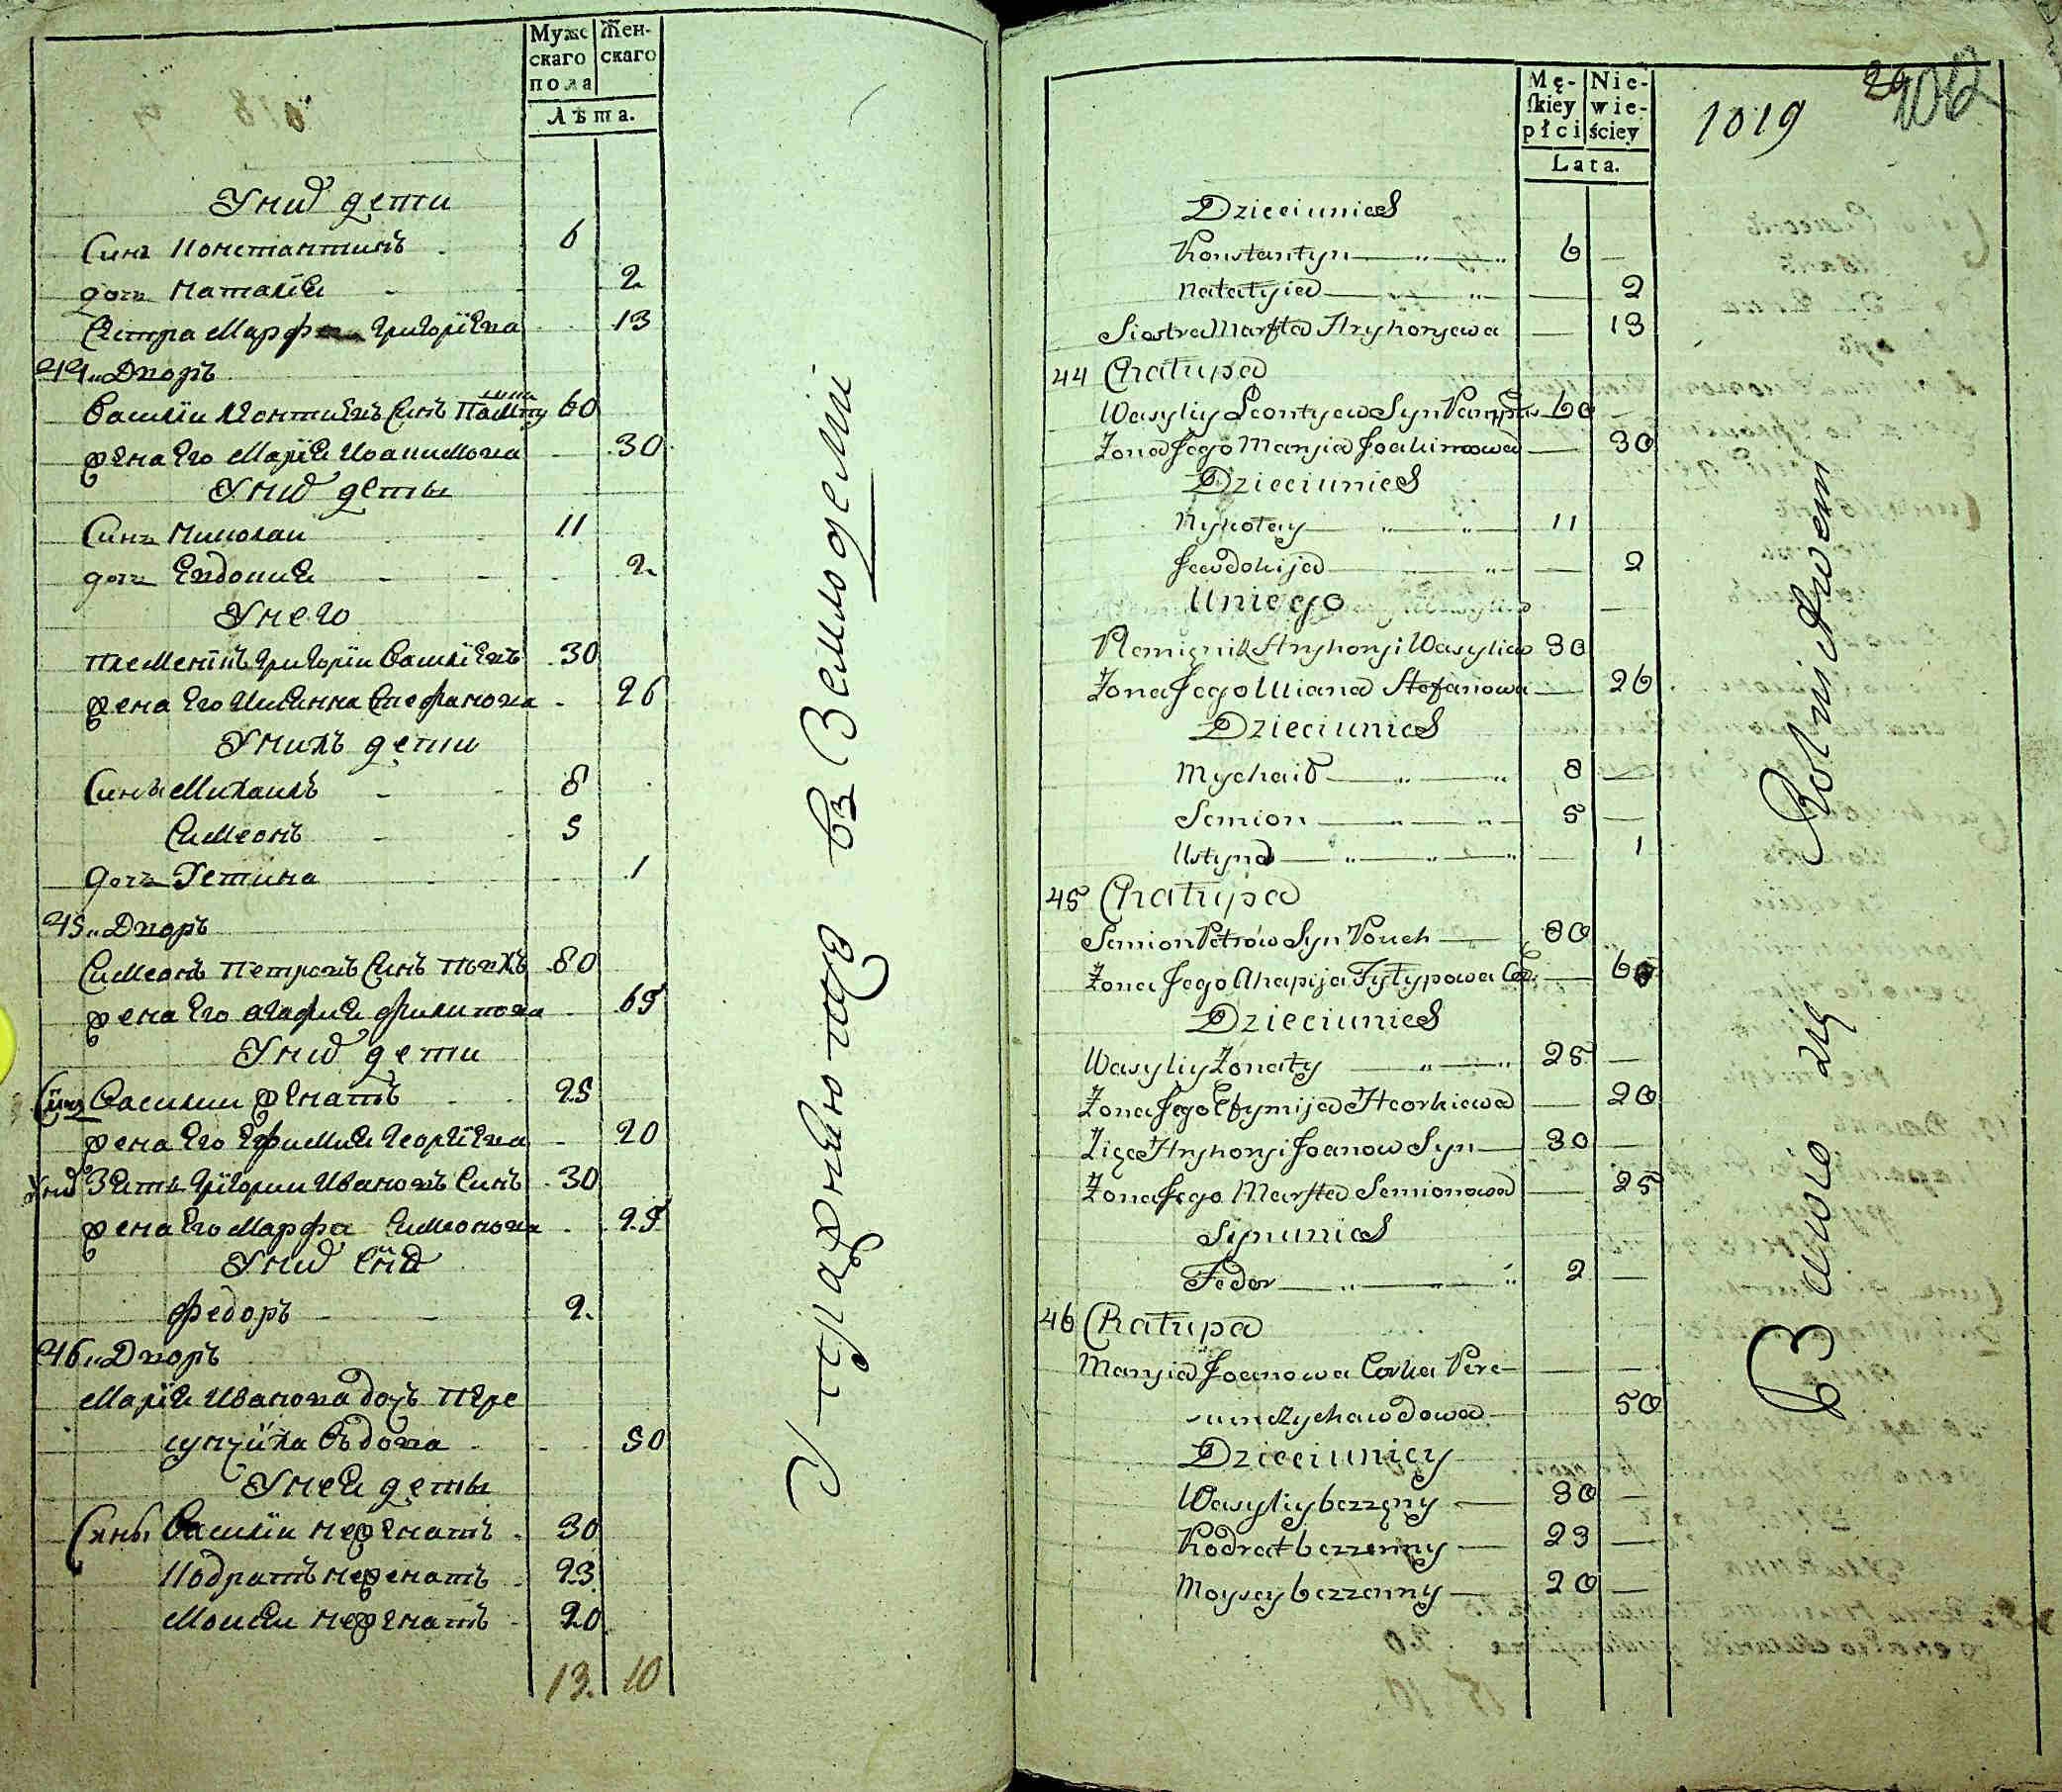 Муже
скаго
пола
Жен-
скаго
Лѣта.
Унид дети
Синъ Константинъ 6
дочъ Наталія 2
Сестра Марфа Григоріева 13
44 Дворъ
Василіи Леонтиевъ Синъ 60
жена Его Марія Иоакимова 30
Унид дети
Синъ Николаи 11
дочъ Евдокия 2
Унего
племеникъ Григоріи Василіевъ 30
жена Его Иулианна Стефанова 26
Унихъ дети
Сины Михаилъ 8
Симеонъ 5
дочъ Устина 1
45 Дворъ
Симеонъ Петровъ Синъ 80
жена Его Агафия Филипова 65
Унид дети
Синъ Василии женатъ 25
жена Его Ефимия Георгіева 20
Унид Зять Григории Ивановъ Синъ 30
жена Его Марфа Симеонова 25
Унид Снъ
Федоръ 2
46 Дворъ
Марія Иванова дочъ Пере
Вдова 50
Унея дети
Сины Василіи неженатъ 30
Кодратъ неженатъ 23
Моисеи неженатъ 20
13. 10
Упражняются въ Земледеліи
Mę-
skiey
płci
Nie-
wie-
ściey
Lata.
1019
102
Dzieci u nich
Konstantyn 6 —
Natalyia — 2
Siostra Marfta Hryhoryewa — 13
44 Chałupa
Wasyliy Leontyew Syn 60 —
Żona Jego Maryia Joakimowa — 30
Dzieci u nich
Nykołay 11
Jewdokija — 2
U niego —
Plemięnik Hryhoryi Wasyliew 30
Żona Jego Uliana Stefanowa — 26
Dzieci u nich
Mychaił 8 —
Semion 5 —
Ustyna — 1
45 Chałupa
Semion Petrów Syn 80
Żona Jego Ahapija Fyłypowa — 65
Dzieci u nich
Wasyliy Żonaty 25 —
Żona Jego Efymija Heorhiewa — 20
Zięć Hryhoryi Joanow Syn 30 —
Żona Jego Marfta Semionowa — 25
Syn u nich
Fedor 2 —
46 Chałupa
Maryia Joanowa Corka Pere- — —
wdowa 50
Dzieci u nicy
Wasyliy bezzęny 30 —
Kodrat bezzenny 23 —
Moysey bezzenny 20 —
B awio się Rolnictwem